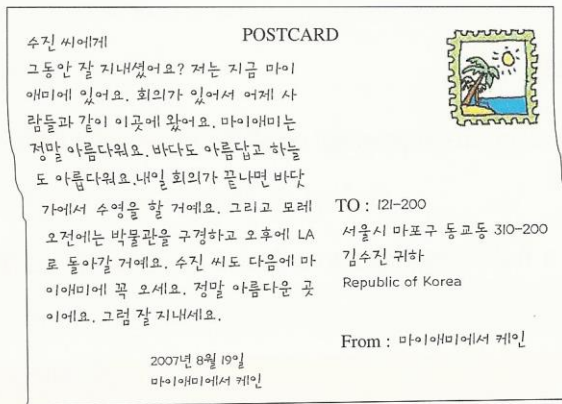 POSTCARD
수진 씨에게
그동안 잘 지내셨어요? 저는 지금 마이
애미에 있어요. 회의가 있어서 어제 사
람들과 같이 이곳에 왔어요. 마이애미는
정말 아름다워요. 바다도 아름답고 하늘
도 아름다워요. 내일 회의가 끝나면 바닷
가에서 수영을 할 거예요. 그리고 모레
오전에는 박물관을 구경하고 오후에 LA
로 돌아갈 거예요. 수진 씨도 다음에 마
이애미에 꼭 오세요. 정말 아름다운 곳
이에요. 그럼 잘 지내세요.
2007년 8월 19일
마이애미에서 케인
TO : 121-200
서울시 마포구 동교동 310-200
김수진 귀하
Republic of Korea
From : 마이애미에서 케인